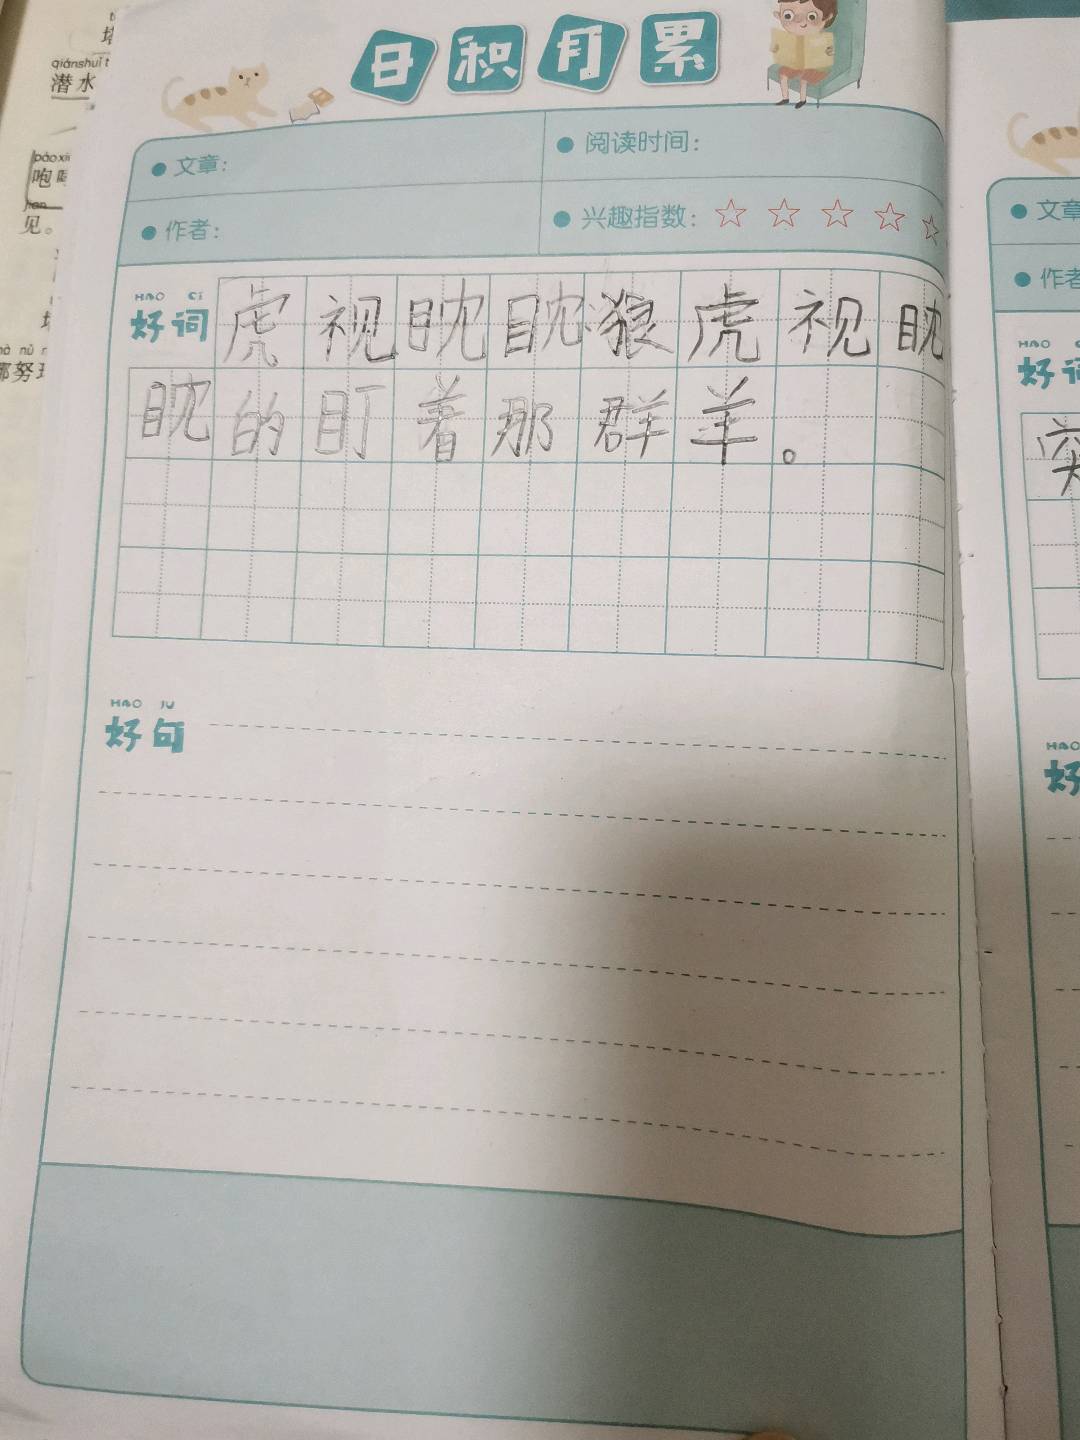 qiánshuǐ
潜水
páoxi
咆
jiàn
见。
nà nǔ
那努
日积月累
文章：
阅读时间：
作者：
兴趣指数：
HAO CI
好词
虎视眈眈狼虎视眈
眈的盯着那群羊。
HAO JU
好句
文章
作者
HAO
好词
突
HAO
好